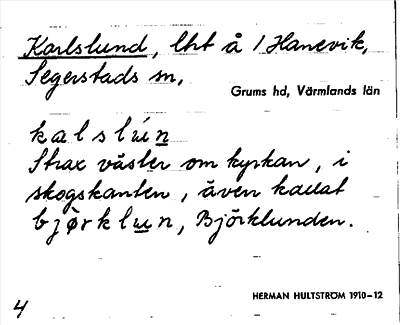 Karlslund, lht å 1 Hanevik,
Segerstads sn,
Grums hd, Värmlands län
kalslún
Strax väster om kyrkan, i
skogskanten, även kallat
bjørklun, Björklunden.
HERMAN HULTSTRÖM 1910–12
4